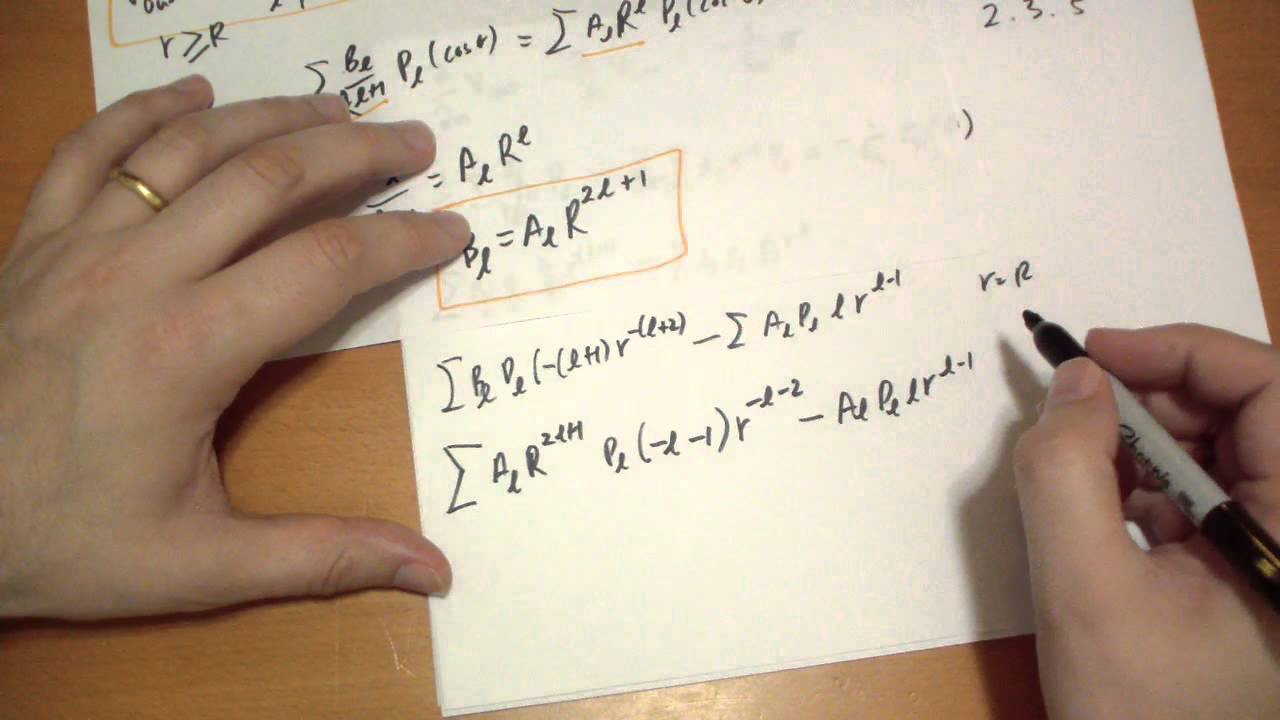 r ≥ R
2.3.5
∑ Bₗ/Rˡ⁺¹ Pₗ(cosθ) = ∑ AₗRˡ Pₗ(cos
= AₗRˡ
Bₗ = AₗR²ˡ⁺¹
r = R
∑ Bₗ Pₗ (-(l+1) r^-(l+2) - ∑ Aₗ Pₗ l r^l-1
∑ AₗR^2l+1 Pₗ (-l-1) r^-l-2 - Aₗ Pₗ l r^l-1
Sharpie